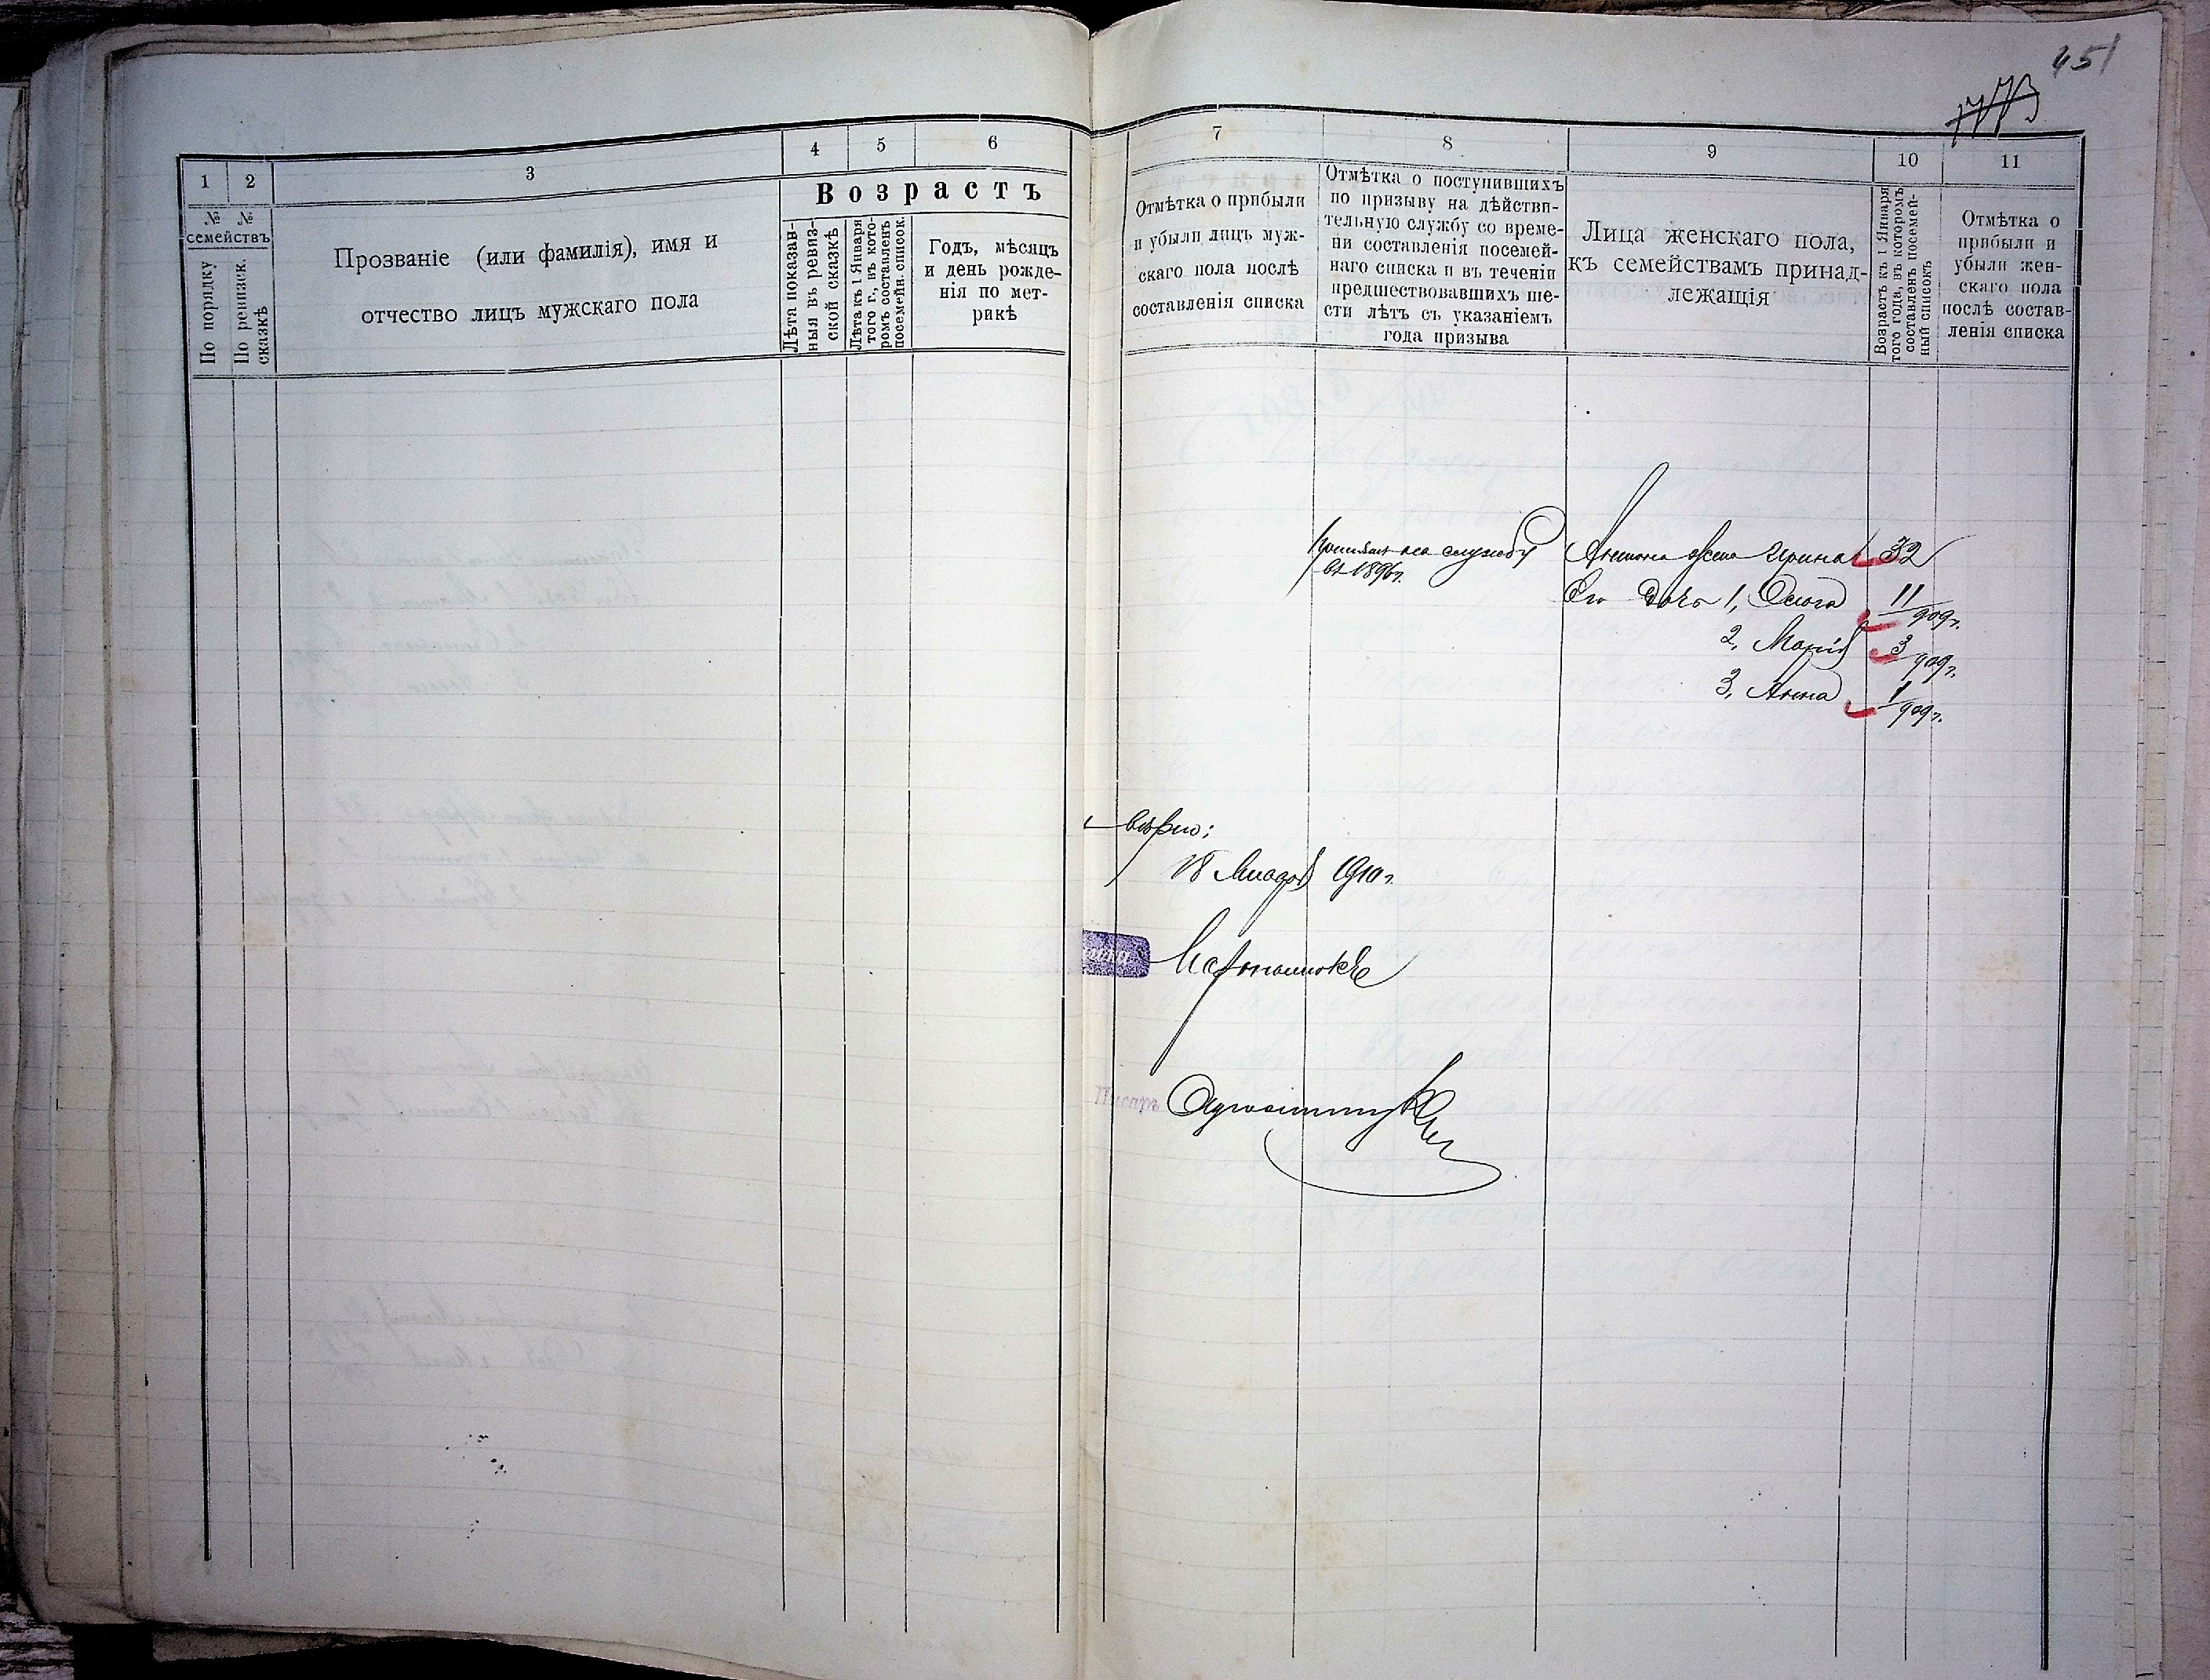 451
1 2 3 4 5 6
Возрастъ
№ № семействъ
По порядку
По ревизск. сказкѣ
Прозваніе (или фамилія), имя и
отчество лицъ мужскаго пола
Лѣта показан-
ныя въ ревиз-
ской сказкѣ
Лѣта къ 1 Января
того г., въ кото-
ромъ составленъ
посемейн. список.
Годъ, мѣсяцъ
и день рожде-
нія по мет-
рикѣ
7 8 9 10 11
Отмѣтка о прибыли
и убыли лицъ муж-
скаго пола послѣ
составленія списка
Отмѣтка о поступившихъ
по призыву на дѣйстви-
тельную службу со време-
ни составленія посемей-
наго списка и въ теченіи
предшествовавшихъ ше-
сти лѣтъ съ указаніемъ
года призыва
Лица женскаго пола,
къ семействамъ принад-
лежащія
Возрастъ къ 1 Января
того года, въ которомъ
составленъ посемей-
ный списокъ
Отмѣтка о
прибыли и
убыли жен-
скаго пола
послѣ состав-
ленія списка
на службу Антона жена Ирина 32
въ 1896 г.
Его дочь 1, Ольга 11/909 г.
2, Марія 3/909 г.
3, Анна 1/909 г.
вѣрно:
18 1910 г.
Писарь